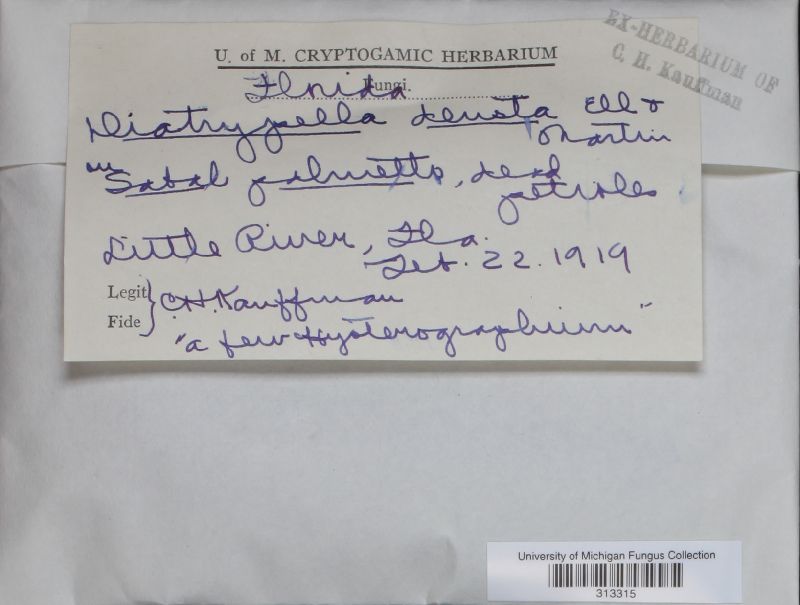 EX-HERBARIUM OF
C. H. Kauffman
U. of M. CRYPTOGAMIC HERBARIUM
Fungi.
Florida
Diatrypella densta Ell &
Martin
on Sabal palmetto, dead
petioles
Little River, Fla.
Feb. 22. 1919
Legit
Fide
C.H. Kauffman
"a few Hysterographium"
University of Michigan Fungus Collection
313315